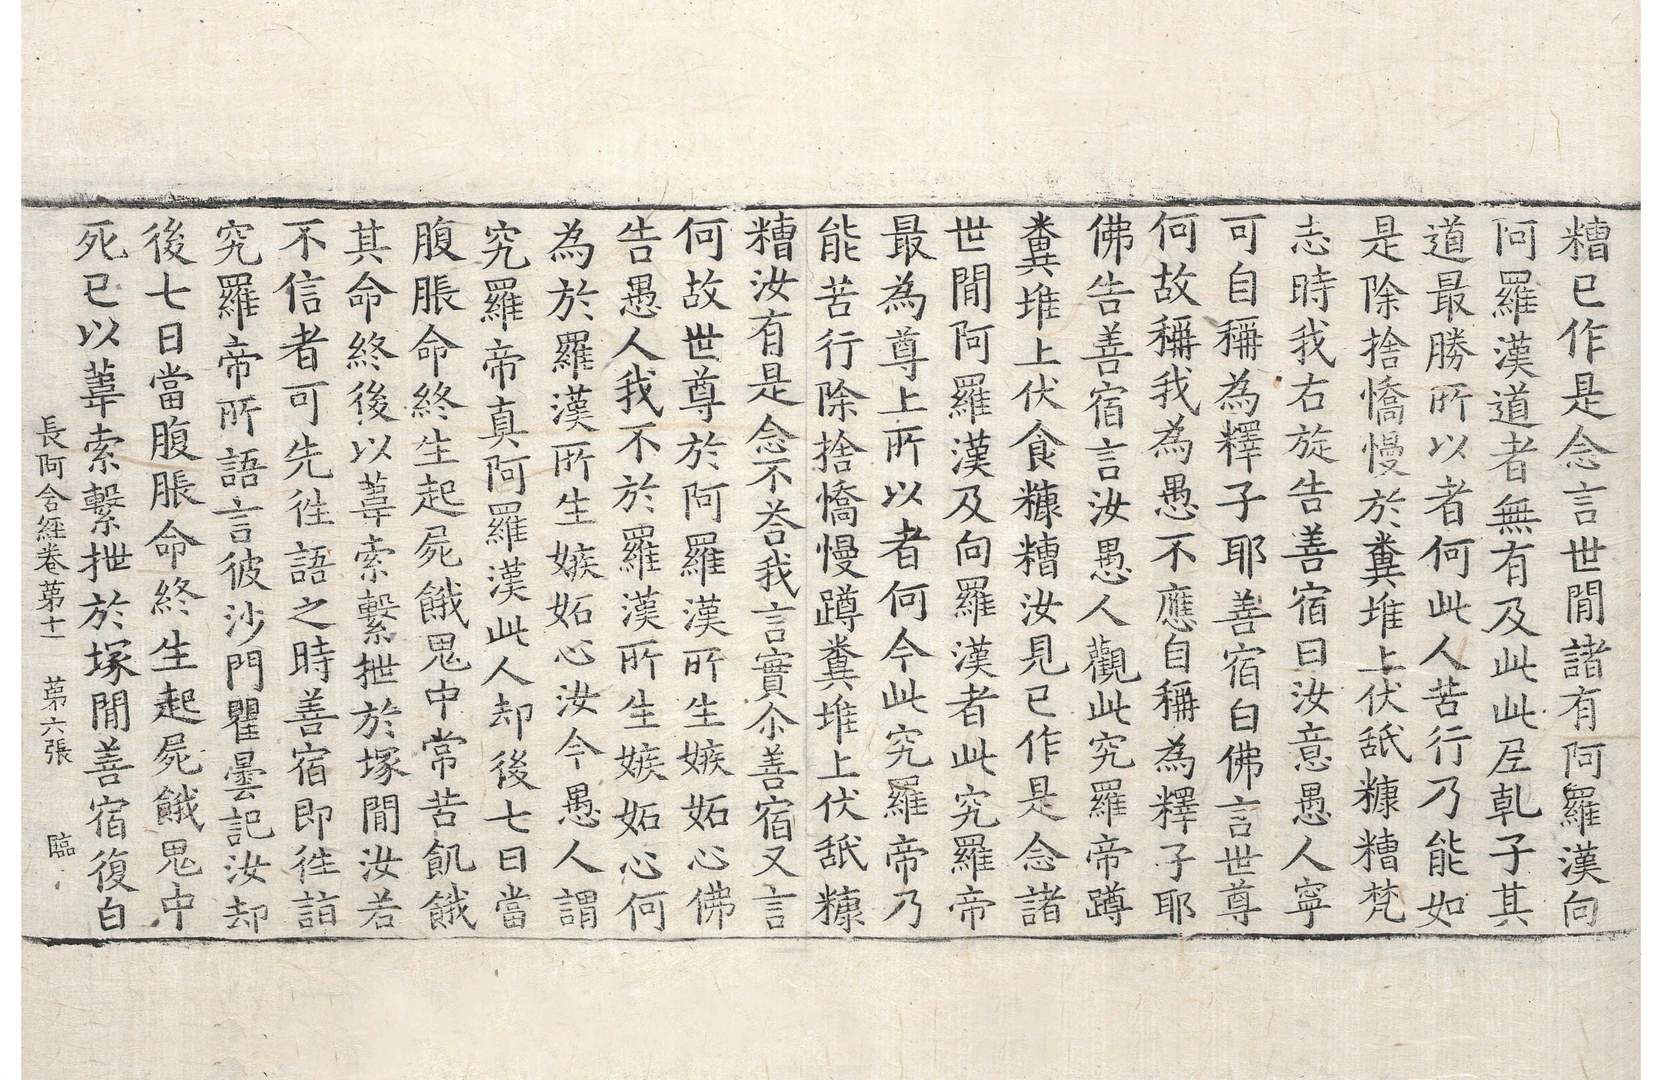 糟已作是念言世間諸有阿羅漢向
阿羅漢道者無有及此此尼乹子其
道最勝所以者何此人苦行乃能如
是除捨憍慢於糞堆上伏舐糠糟梵
志時我右旋告善宿曰汝意愚人寧
可自稱為釋子耶善宿白佛言世尊
何故稱我為愚不應自稱為釋子耶
佛告善宿言汝愚人觀此究羅帝蹲
糞堆上伏食糠糟汝見已作是念諸
世間阿羅漢及向羅漢者此究羅帝
最為尊上所以者何今此究羅帝乃
能苦行除捨憍慢蹲糞堆上伏舐糠
糟汝有是念不荅我言實尒善宿又言
何故世尊於阿羅漢所生嫉妬心佛
告愚人我不於羅漢所生嫉妬心何
為於羅漢所生嫉妬心汝今愚人謂
究羅帝真阿羅漢此人却後七日當
腹脹命終生起屍餓鬼中常苦飢餓
其命終後以葦索繫抴於塚間汝若
不信者可先徃語之時善宿即徃詣
究羅帝所語言彼沙門瞿曇記汝却
後七日當腹脹命終生起屍餓鬼中
死已以葦索繫抴於塚間善宿復白
長阿含經卷第十一 第六張 臨